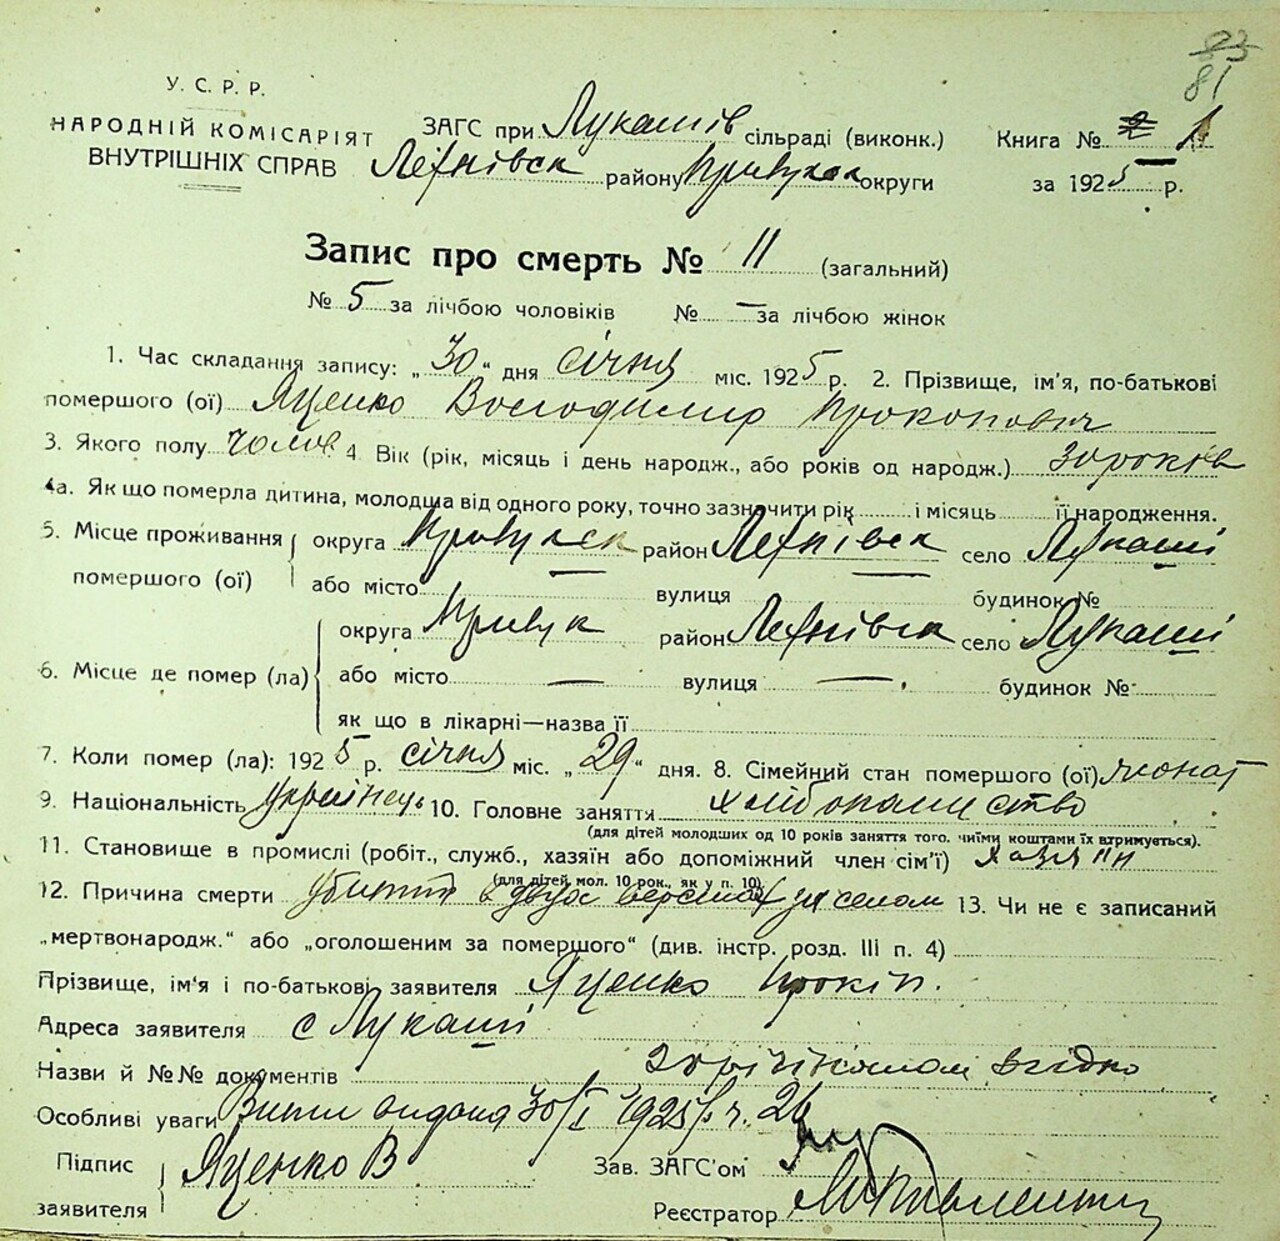 83
81
У. С. Р. Р.
НАРОДНІЙ КОМІСАРІЯТ
ВНУТРІШНІХ СПРАВ
ЗАГС при Лукашів сільраді (виконк.)
Книга № 1
району Прилуцьк округи
за 1925 р.
Запис про смерть № 11 (загальний)
№ 5 за лічбою чоловіків № — за лічбою жінок
1. Час складання запису: „30“ дня січня міс. 1925 р. 2. Прізвище, ім'я, по-батькові
помершого (ої) Яценко Володимир Прокопович
3. Якого полу чолов 4. Вік (рік, місяць і день народж., або років од народж.) 30 років
4а. Як що померла дитина, молодша від одного року, точно зазначити рік і місяць її народження.
5. Місце проживання помершого (ої)
округа Прилуцьк район село Лукаші
або місто — вулиця — будинок №
6. Місце де помер (ла)
округа Прилук район село Лукаші
або місто — вулиця — . будинок №
як що в лікарні—назва її
7. Коли помер (ла): 1925 р. січня міс. „29“ дня. 8. Сімейний стан помершого (ої) жонат
9. Національність українець 10. Головне заняття хліборобство
(для дітей молодших од 10 років заняття того. чиїми коштами їх втримується).
11. Становище в промислі (робіт., служб., хазяїн або допоміжний член сім'ї) хазяїн
(для дітей мол. 10 рок., як у п. 10).
12. Причина смерти убитт в двух верстах за селом 13. Чи не є записаний
„мертвонародж.“ або „оголошеним за помершого“ (див. інстр. розд. III п. 4)
Прізвище, ім'я і по-батькові заявителя Яценко Прокіп.
Адреса заявителя с Лукаші
Назви й №№ документів згідно
Особливі уваги 30/I 1925 р. ч. 26
Підпис заявителя Яценко В
Зав. ЗАГС'ом
Реєстратор